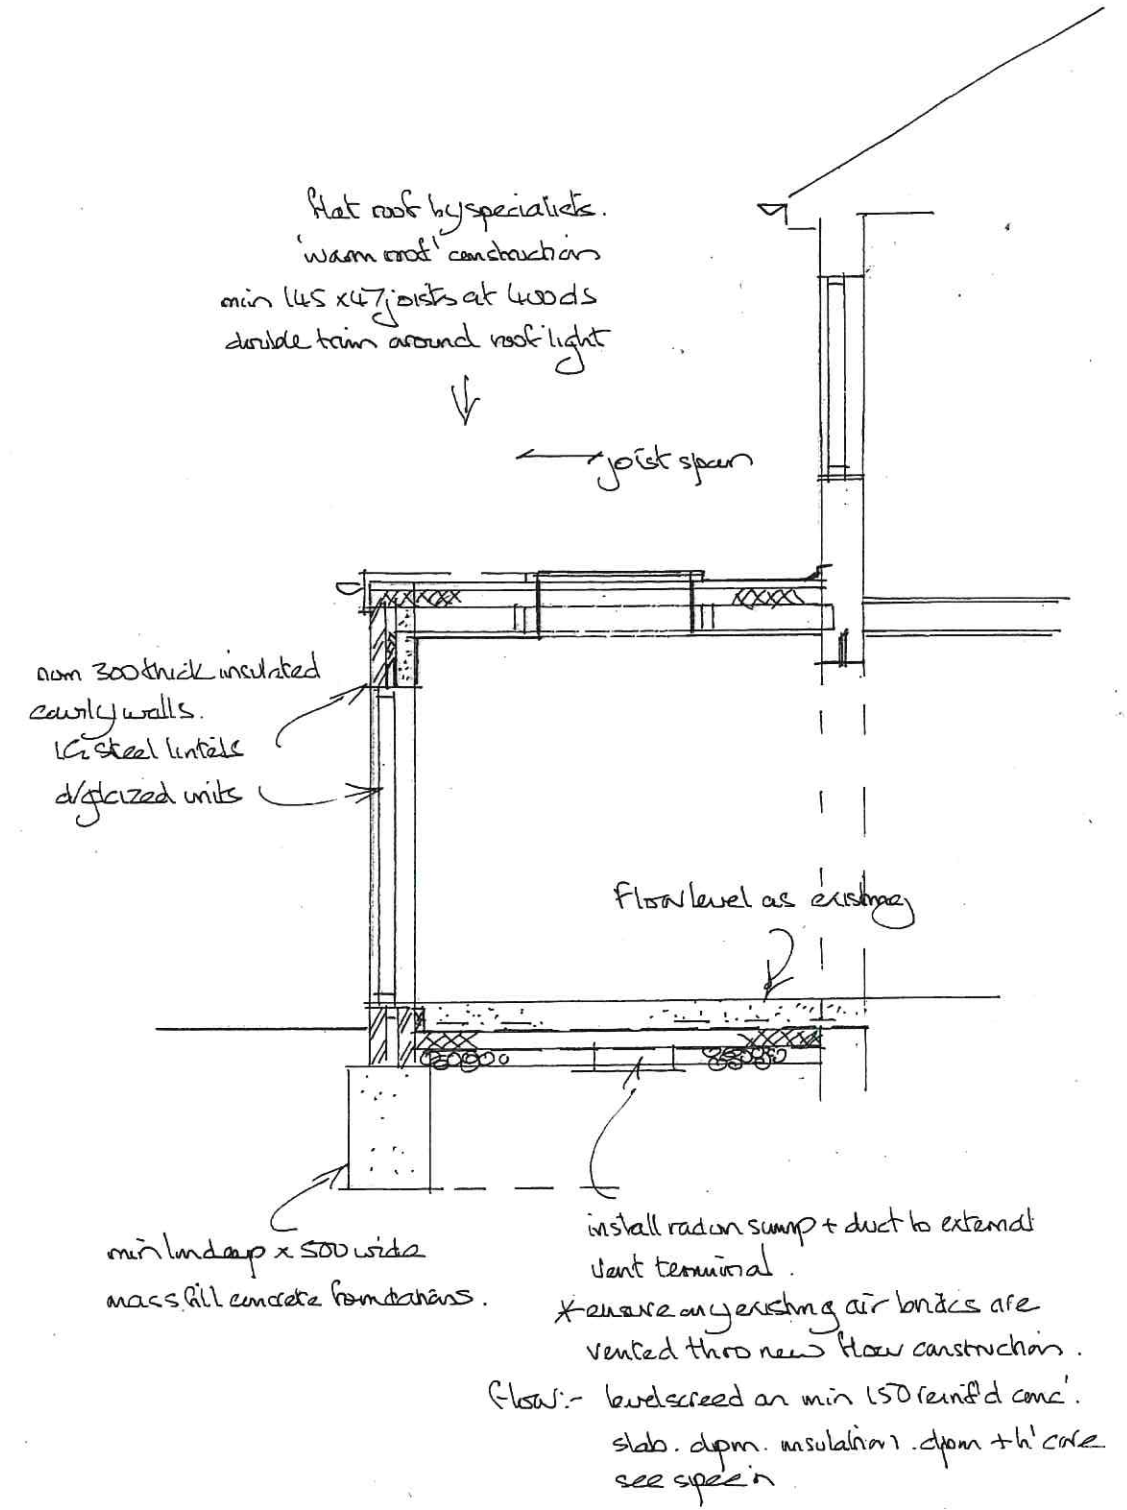 flat roof by specialists.
'warm roof' construction
min 145 x 47 joists at 400 ds
double trim around roof light
joist span
nom 300 thick insulated
cavity walls.
IG steel lintels
d/glazed units
Floor level as existing
min 1m deep x 500 wide
mass fill concrete foundations.
install radon sump + duct to external
vent terminal.
* ensure any existing air bricks are
vented thro new floor construction.
floor:- level screed on min 150 reinf'd conc'.
slab. dpm. insulation. dpm + h'core
see spec'n